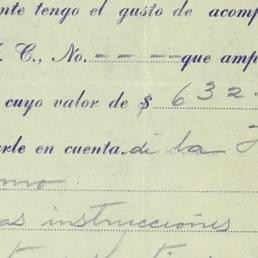 nte tengo el gusto de acomp
C., No. - - - - que amp
cuyo valor de $ 632.
rle en cuenta. di la
mo
as instrucciones